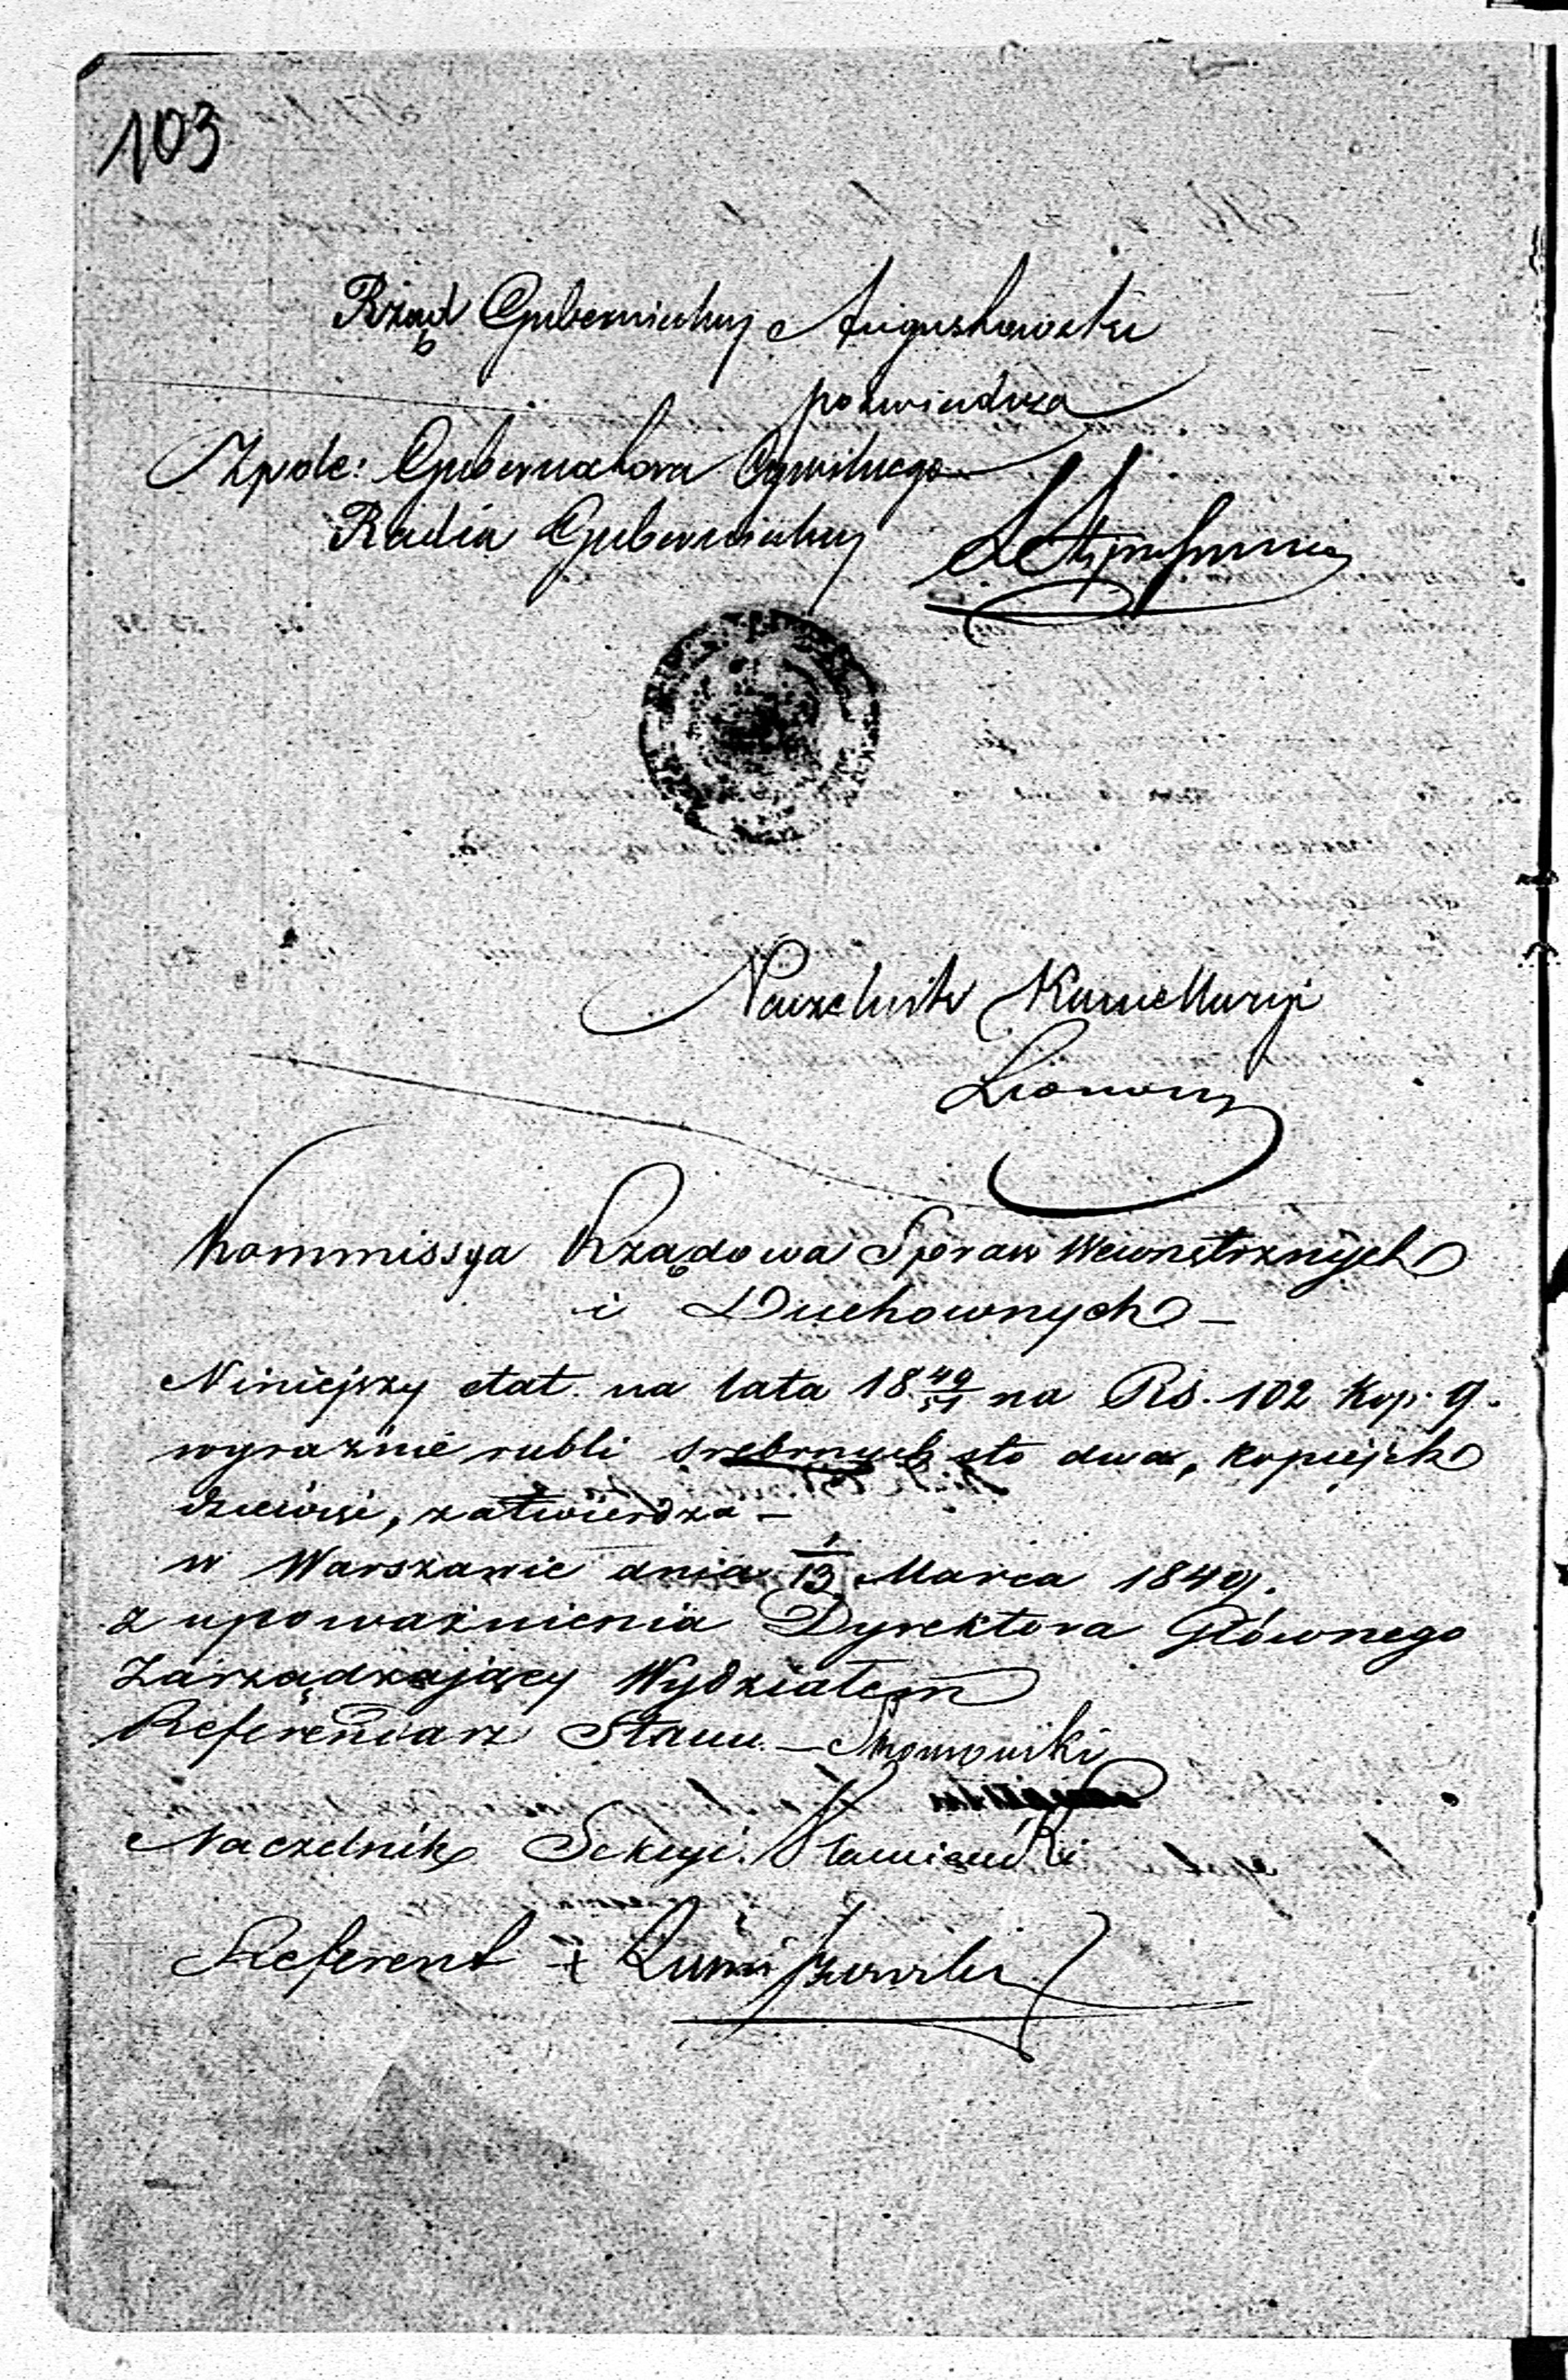 103
Rząd Gubernialny Augustowski
poświadcza
Zpole: Gubernatora Cywilnego
Radca Gubernialny
Naczelnik Kancellaryi
Kommissya Rządowa Spraw Wewnętrznych
i Duchownych –
Niniejszy etat na lata 18 49/51 na Rś. 102 Kop. 9.
wyraźnie rubli srebrnych sto dwa, kopiejek
dziewięć, zatwierdza –
w Warszawie dnia 1/13 Marca 1849.
z upoważnienia Dyrektora Głównego
Zarządzający Wydziałem
Referendarz Stanu –
Naczelnik Sekcyi.
Referent